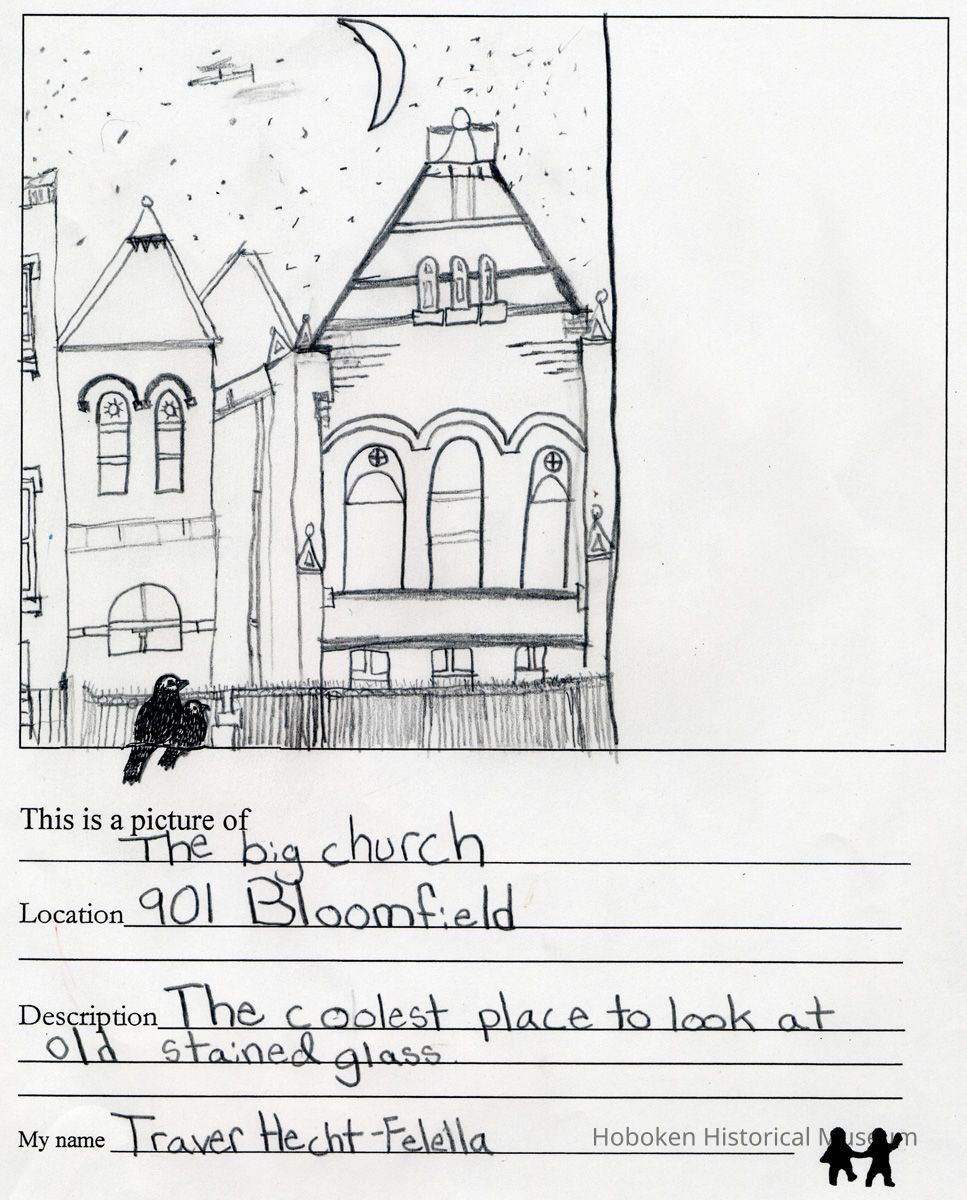 This is a picture of
The big church
Location 901 Bloomfield
Description The coolest place to look at
old stained glass.
My name Traver Hecht-Felella
Hoboken Historical Museum